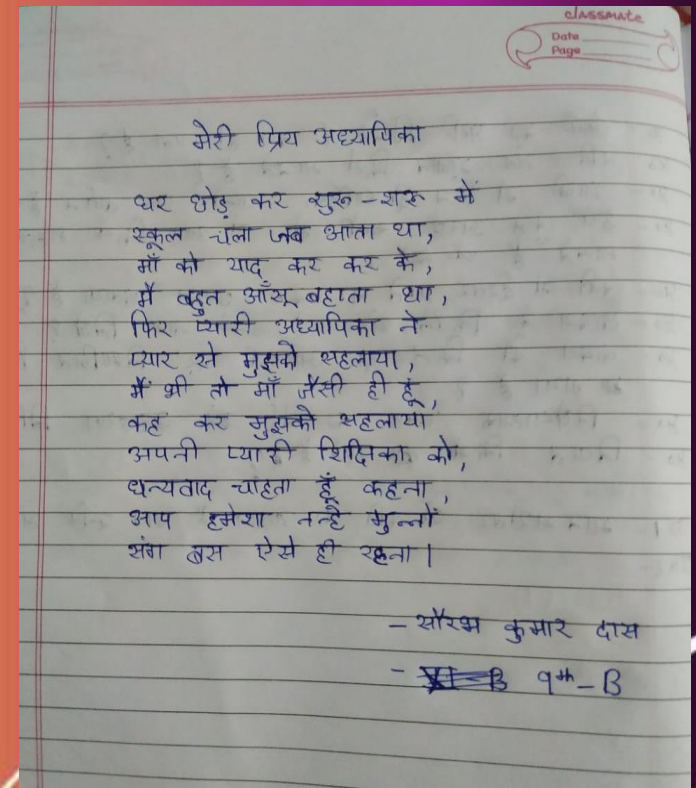 classmate
Date
Page
मेरी प्रिय अध्यापिका
घर छोड़ कर शुरू-शरू में
स्कूल चला जब आता था,
माँ को याद कर कर के,
मै बहुत आँसू बहाता था,
फिर प्यारी अध्यापिका ने
प्यार से मुझको सहलाया,
मैं भी तो माँ जैसी ही हूं,
कह कर मुझको सहलाया
अपनी प्यारी शिक्षिका को,
धन्यवाद चाहता हूँ कहना,
आप हमेशा नन्हे मुन्नों
संग बस ऐसे ही रहना।
- सौरभ कुमार दास
- 9th - B